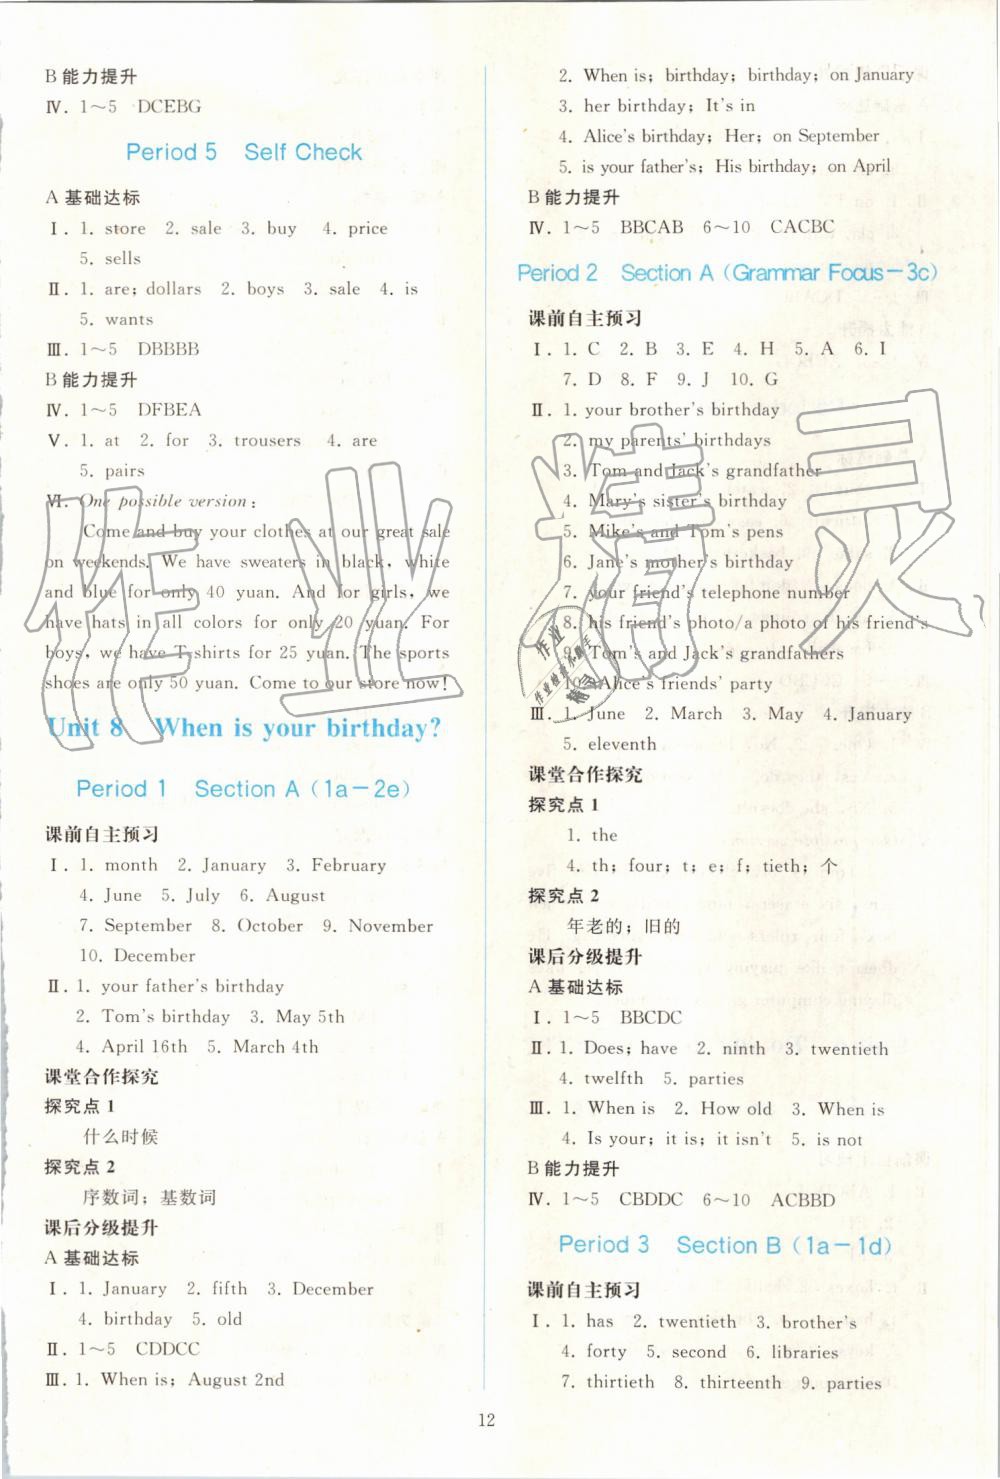 B 能力提升
Ⅳ. 1～5 DCEBG
Period 5 Self Check
A 基础达标
Ⅰ. 1. store 2. sale 3. buy 4. price
5. sells
Ⅱ. 1. are; dollars 2. boys 3. sale 4. is
5. wants
Ⅲ. 1～5 DBBBB
B 能力提升
Ⅳ. 1～5 DFBEA
Ⅴ. 1. at 2. for 3. trousers 4. are
5. pairs
Ⅵ. One possible version:
Come and buy your clothes at our great sale
on weekends. We have sweaters in black, white
and blue for only 40 yuan. And for girls, we
have hats in all colors for only 20 yuan. For
boys, we have T-shirts for 25 yuan. The sports
shoes are only 50 yuan. Come to our store now!
Unit 8 When is your birthday?
Period 1 Section A (1a－2e)
课前自主预习
Ⅰ. 1. month 2. January 3. February
4. June 5. July 6. August
7. September 8. October 9. November
10. December
Ⅱ. 1. your father's birthday
2. Tom's birthday 3. May 5th
4. April 16th 5. March 4th
课堂合作探究
探究点 1
什么时候
探究点 2
序数词; 基数词
课后分级提升
A 基础达标
Ⅰ. 1. January 2. fifth 3. December
4. birthday 5. old
Ⅱ. 1～5 CDDCC
Ⅲ. 1. When is; August 2nd
2. When is; birthday; birthday; on January
3. her birthday; It's in
4. Alice's birthday; Her; on September
5. is your father's; His birthday; on April
B 能力提升
Ⅳ. 1～5 BBCAB 6～10 CACBC
Period 2 Section A (Grammar Focus－3c)
课前自主预习
Ⅰ. 1. C 2. B 3. E 4. H 5. A 6. I
7. D 8. F 9. J 10. G
Ⅱ. 1. your brother's birthday
2. my parents' birthdays
3. Tom and Jack's grandfather
4. Mary's sister's birthday
5. Mike's and Tom's pens
6. Jane's mother's birthday
7. your friend's telephone number
8. his friend's photo/a photo of his friend's
9. Tom's and Jack's grandfathers
10. Alice's friends' party
Ⅲ. 1. June 2. March 3. May 4. January
5. eleventh
课堂合作探究
探究点 1
1. the
4. th; four; t; e; f; tieth; 个
探究点 2
年老的; 旧的
课后分级提升
A 基础达标
Ⅰ. 1～5 BBCDC
Ⅱ. 1. Does; have 2. ninth 3. twentieth
4. twelfth 5. parties
Ⅲ. 1. When is 2. How old 3. When is
4. Is your; it is; it isn't 5. is not
B 能力提升
Ⅳ. 1～5 CBDDC 6～10 ACBBD
Period 3 Section B (1a－1d)
课前自主预习
Ⅰ. 1. has 2. twentieth 3. brother's
4. forty 5. second 6. libraries
7. thirtieth 8. thirteenth 9. parties
12
作业精灵